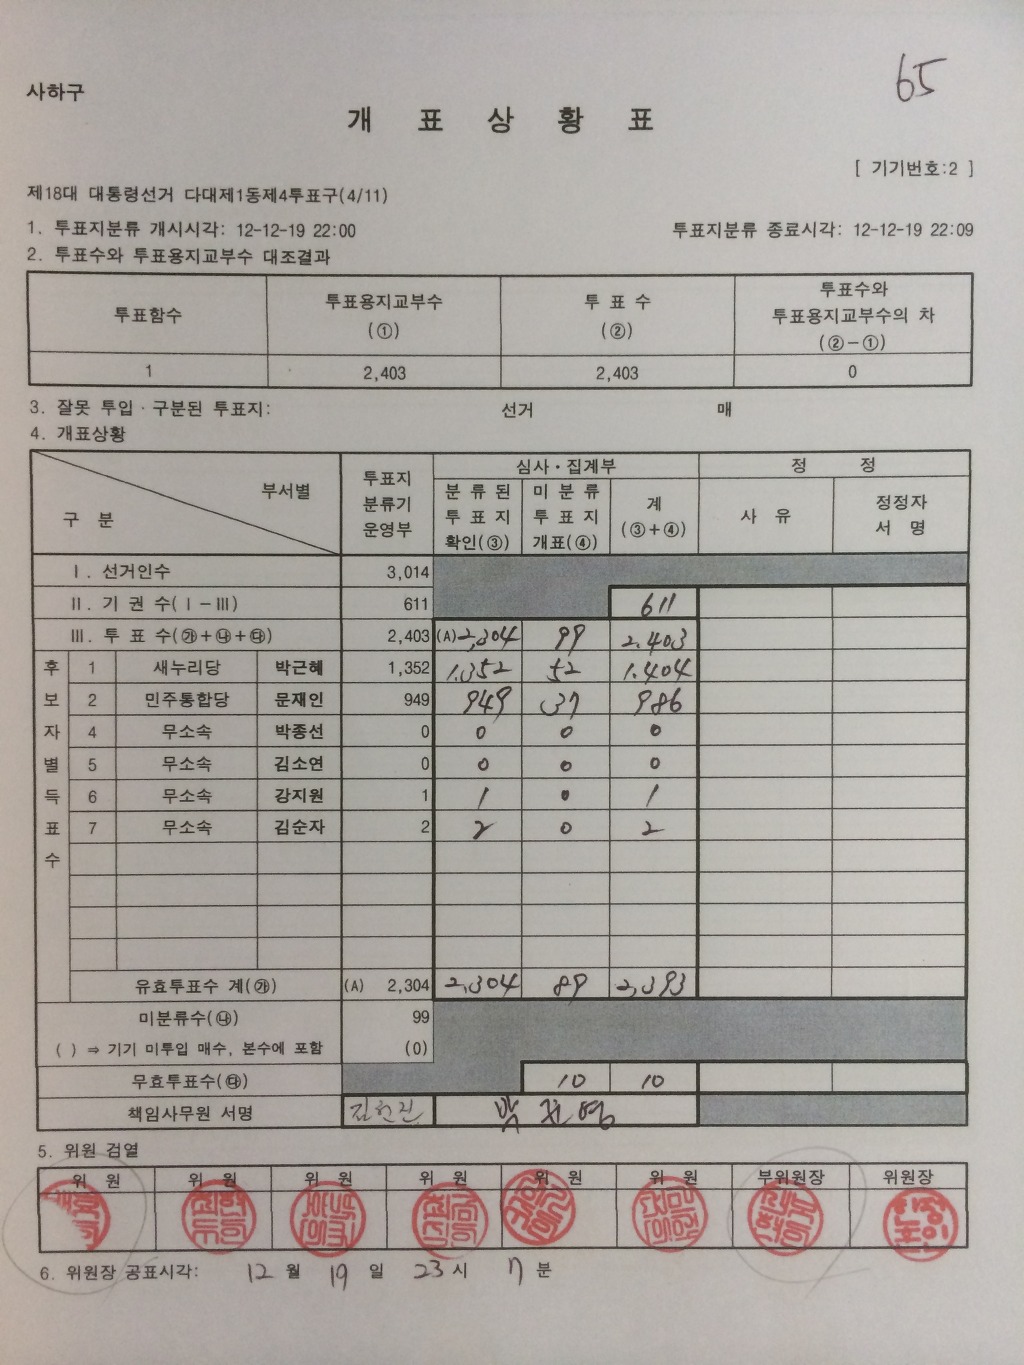 65
사하구
개 표 상 황 표
[ 기기번호:2 ]
제18대 대통령선거 다대제1동제4투표구(4/11)
1. 투표지분류 개시시각: 12-12-19 22:00 투표지분류 종료시각: 12-12-19 22:09
2. 투표수와 투표용지교부수 대조결과
투표함수 투표용지교부수 (①) 투 표 수 (②) 투표수와 투표용지교부수의 차 (②-①)
1 2,403 2,403 0
3. 잘못 투입·구분된 투표지: 선거 매
4. 개표상황
구 분 부서별 투표지 분류기 운영부 심사·집계부 정 정
분 류 된 투 표 지 확인(③) 미 분 류 투 표 지 개표(④) 계 (③+④) 사 유 정정자 서 명
Ⅰ. 선거인수 3,014
Ⅱ. 기 권 수(Ⅰ-Ⅲ) 611 611
Ⅲ. 투 표 수(㉮+㉯+㉰) 2,403 (A) 2,304 99 2.403
후보자별득표수
1 새누리당 박근혜 1,352 1.352 52 1.404
2 민주통합당 문재인 949 949 37 986
4 무소속 박종선 0 0 0 0
5 무소속 김소연 0 0 0 0
6 무소속 강지원 1 1 0 1
7 무소속 김순자 2 2 0 2
유효투표수 계(㉮) (A) 2,304 2,304 89 2,393
미분류수(㉯) 99
( ) ⇒ 기기 미투입 매수, 본수에 포함 (0)
무효투표수(㉰) 10 10
책임사무원 서명
5. 위원 검열
위 원 위 원 위 원 위 원 위 원 위 원 부위원장 위원장
6. 위원장 공표시각: 12 월 19 일 23 시 7 분